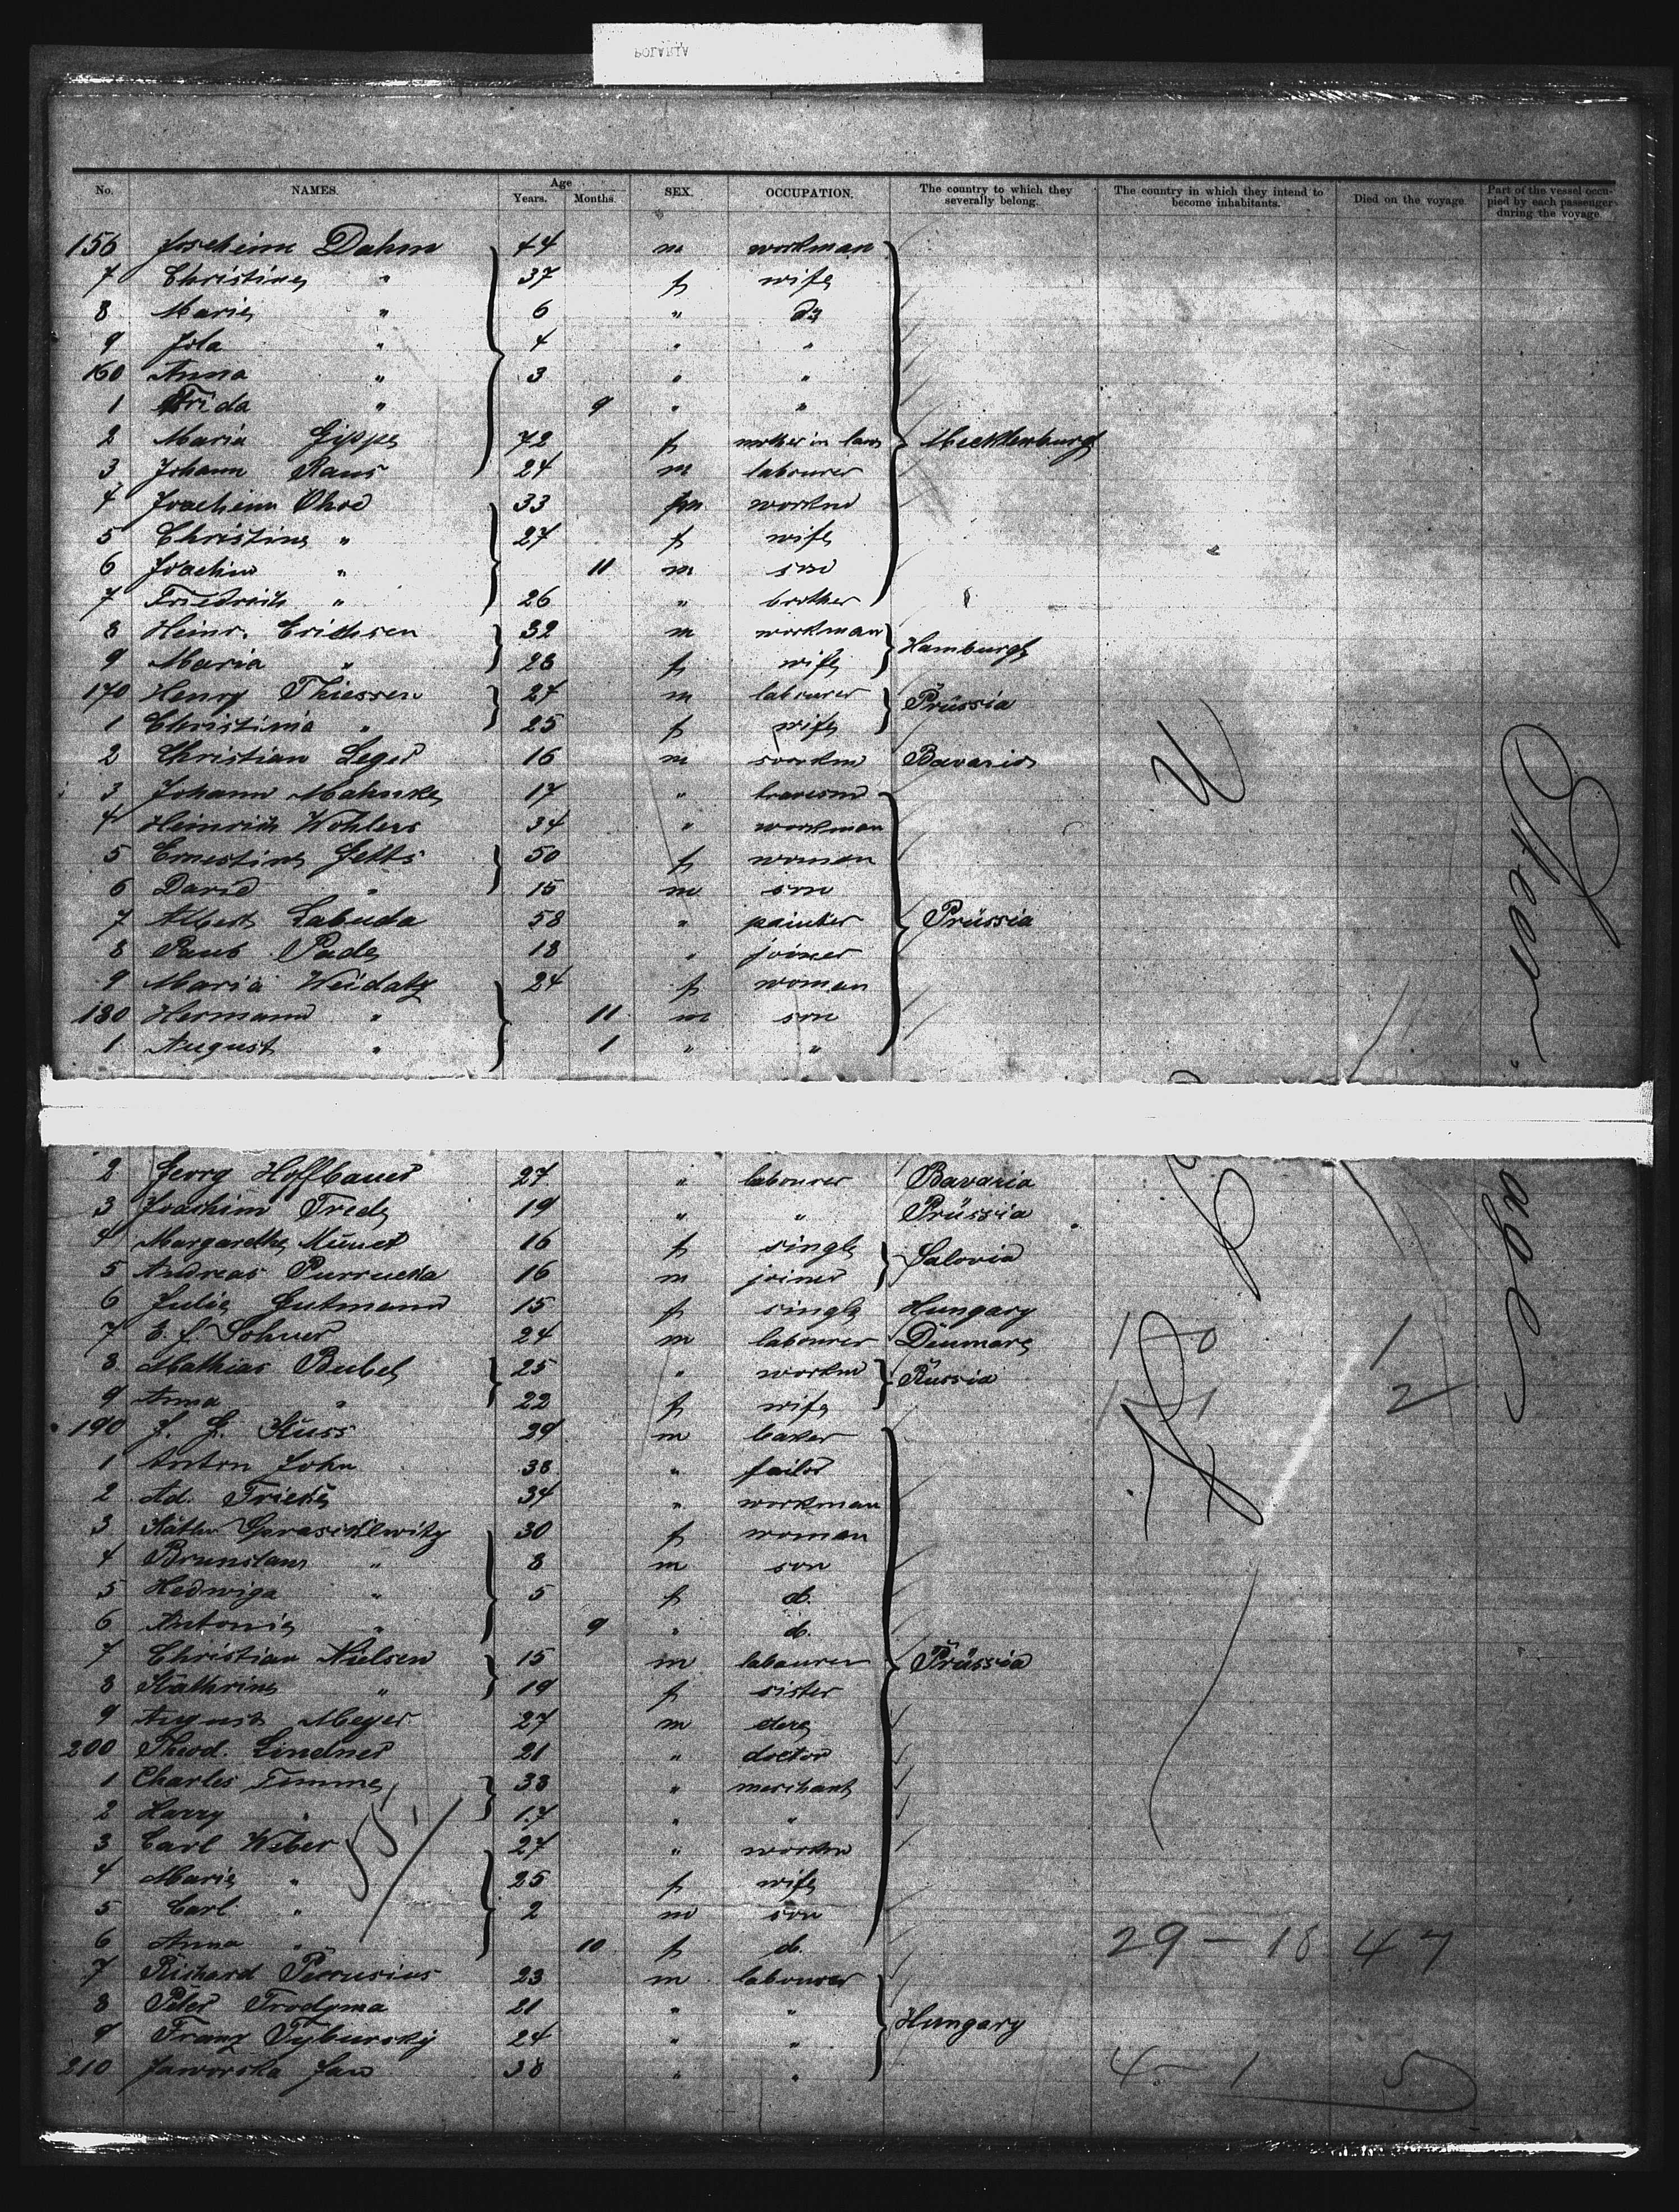 POLARIA
No. NAMES. Age Years. Months. SEX. OCCUPATION. The country to which they severally belong. The country in which they intend to become inhabitants. Died on the voyage. Part of the vessel occupied by each passenger during the voyage.
156 Joscheim Dahm 44 m workman
7 Christine " 37 f wife
8 Marie " 6 " d
9 " 4 " "
160 Anna " 3 " "
1 Frida " 9 " "
2 Maria Gipps 72 f mother in law Mecklenburg
3 Johann Raus 24 m labourer
4 Joachim Ohse 33 m workm
5 Christine " 27 f wife
6 Joachim " 11 m son
7 Friedrich " 26 " brother
8 Heinr. Erichsen 32 m workman Hamburg
9 Maria " 28 f wife
170 Henry Thiessen 27 m labourer Prüssia
1 Christinia " 25 f wife
2 Christian Leger 16 m workm Bavaria
3 Johann Mahnke 17 "
4 Heinrich Wohlers 34 " workman
5 Ernestine Jetts 50 f woman
6 David " 15 m son
7 Albert Labuda 58 " painter Prüssia
8 Paul Pade 18 " joiner
9 Maria Weidatz 24 f woman
180 Hermann " 11 m son
1 August " 1 " "
2 Georg Hoffbauer 27 " labourer Bavaria
3 Joachim Frede 19 " " Prüssia
4 Margarethe 16 f single
5 Andreas Purrucka 16 m joiner
6 Julie Gutmann 15 f single Hungary
7 E. f. Sohner 24 m labourer Dënmark 1
8 Mathias Bubel 25 " workm Rüssia
9 Anna " 22 f wife 2
190 J. G. Küss 29 m
1 Anton John 38 " tailor
2 Ad. Fricke 34 " workman
3 30 f woman
4 Brunslaus " 8 m son
5 Hedwiga " 5 f d.
6 Antonie " 9 " d.
7 Christian Nielsen 15 m labourer Prüssia
8 Kathrine " 19 f sister
9 August Meyer 27 m
200 Theod. Lindner 21 " doctor
1 Charles Timme 33 " merchant
2 Harry " 17 " "
3 Carl Weber 27 " workm
4 Marie " 25 f wife
5 Carl " 2 m son
6 Anna " 10 f d. 29 - 18 47
7 Richard Perrusius 23 m labourer
8 Peter Trodyma 21 " "
9 Franz Tybursky 24 " " Hungary
210 Jaworska Jan 38 " " 4 - 1 5